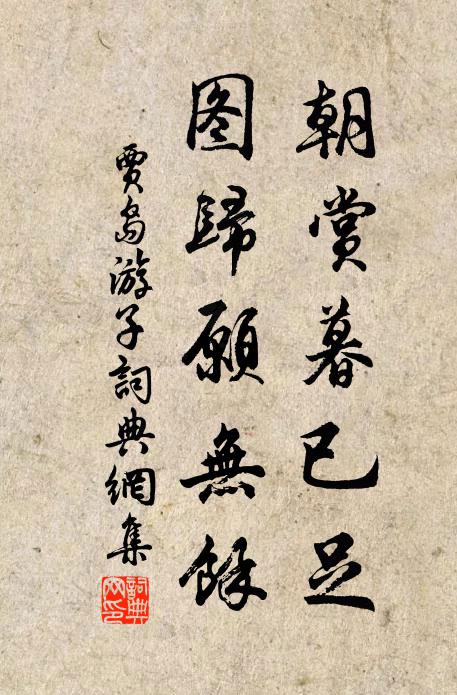 朝赏暮已足
图歸願無餘
賈島游子詞典網集
詞典網印